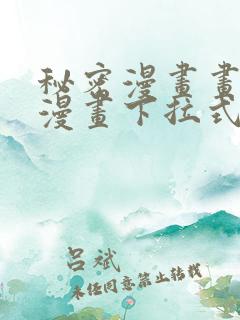 秘密漫畫畫
漫畫下拉式
呂斌
未经同意禁止转载